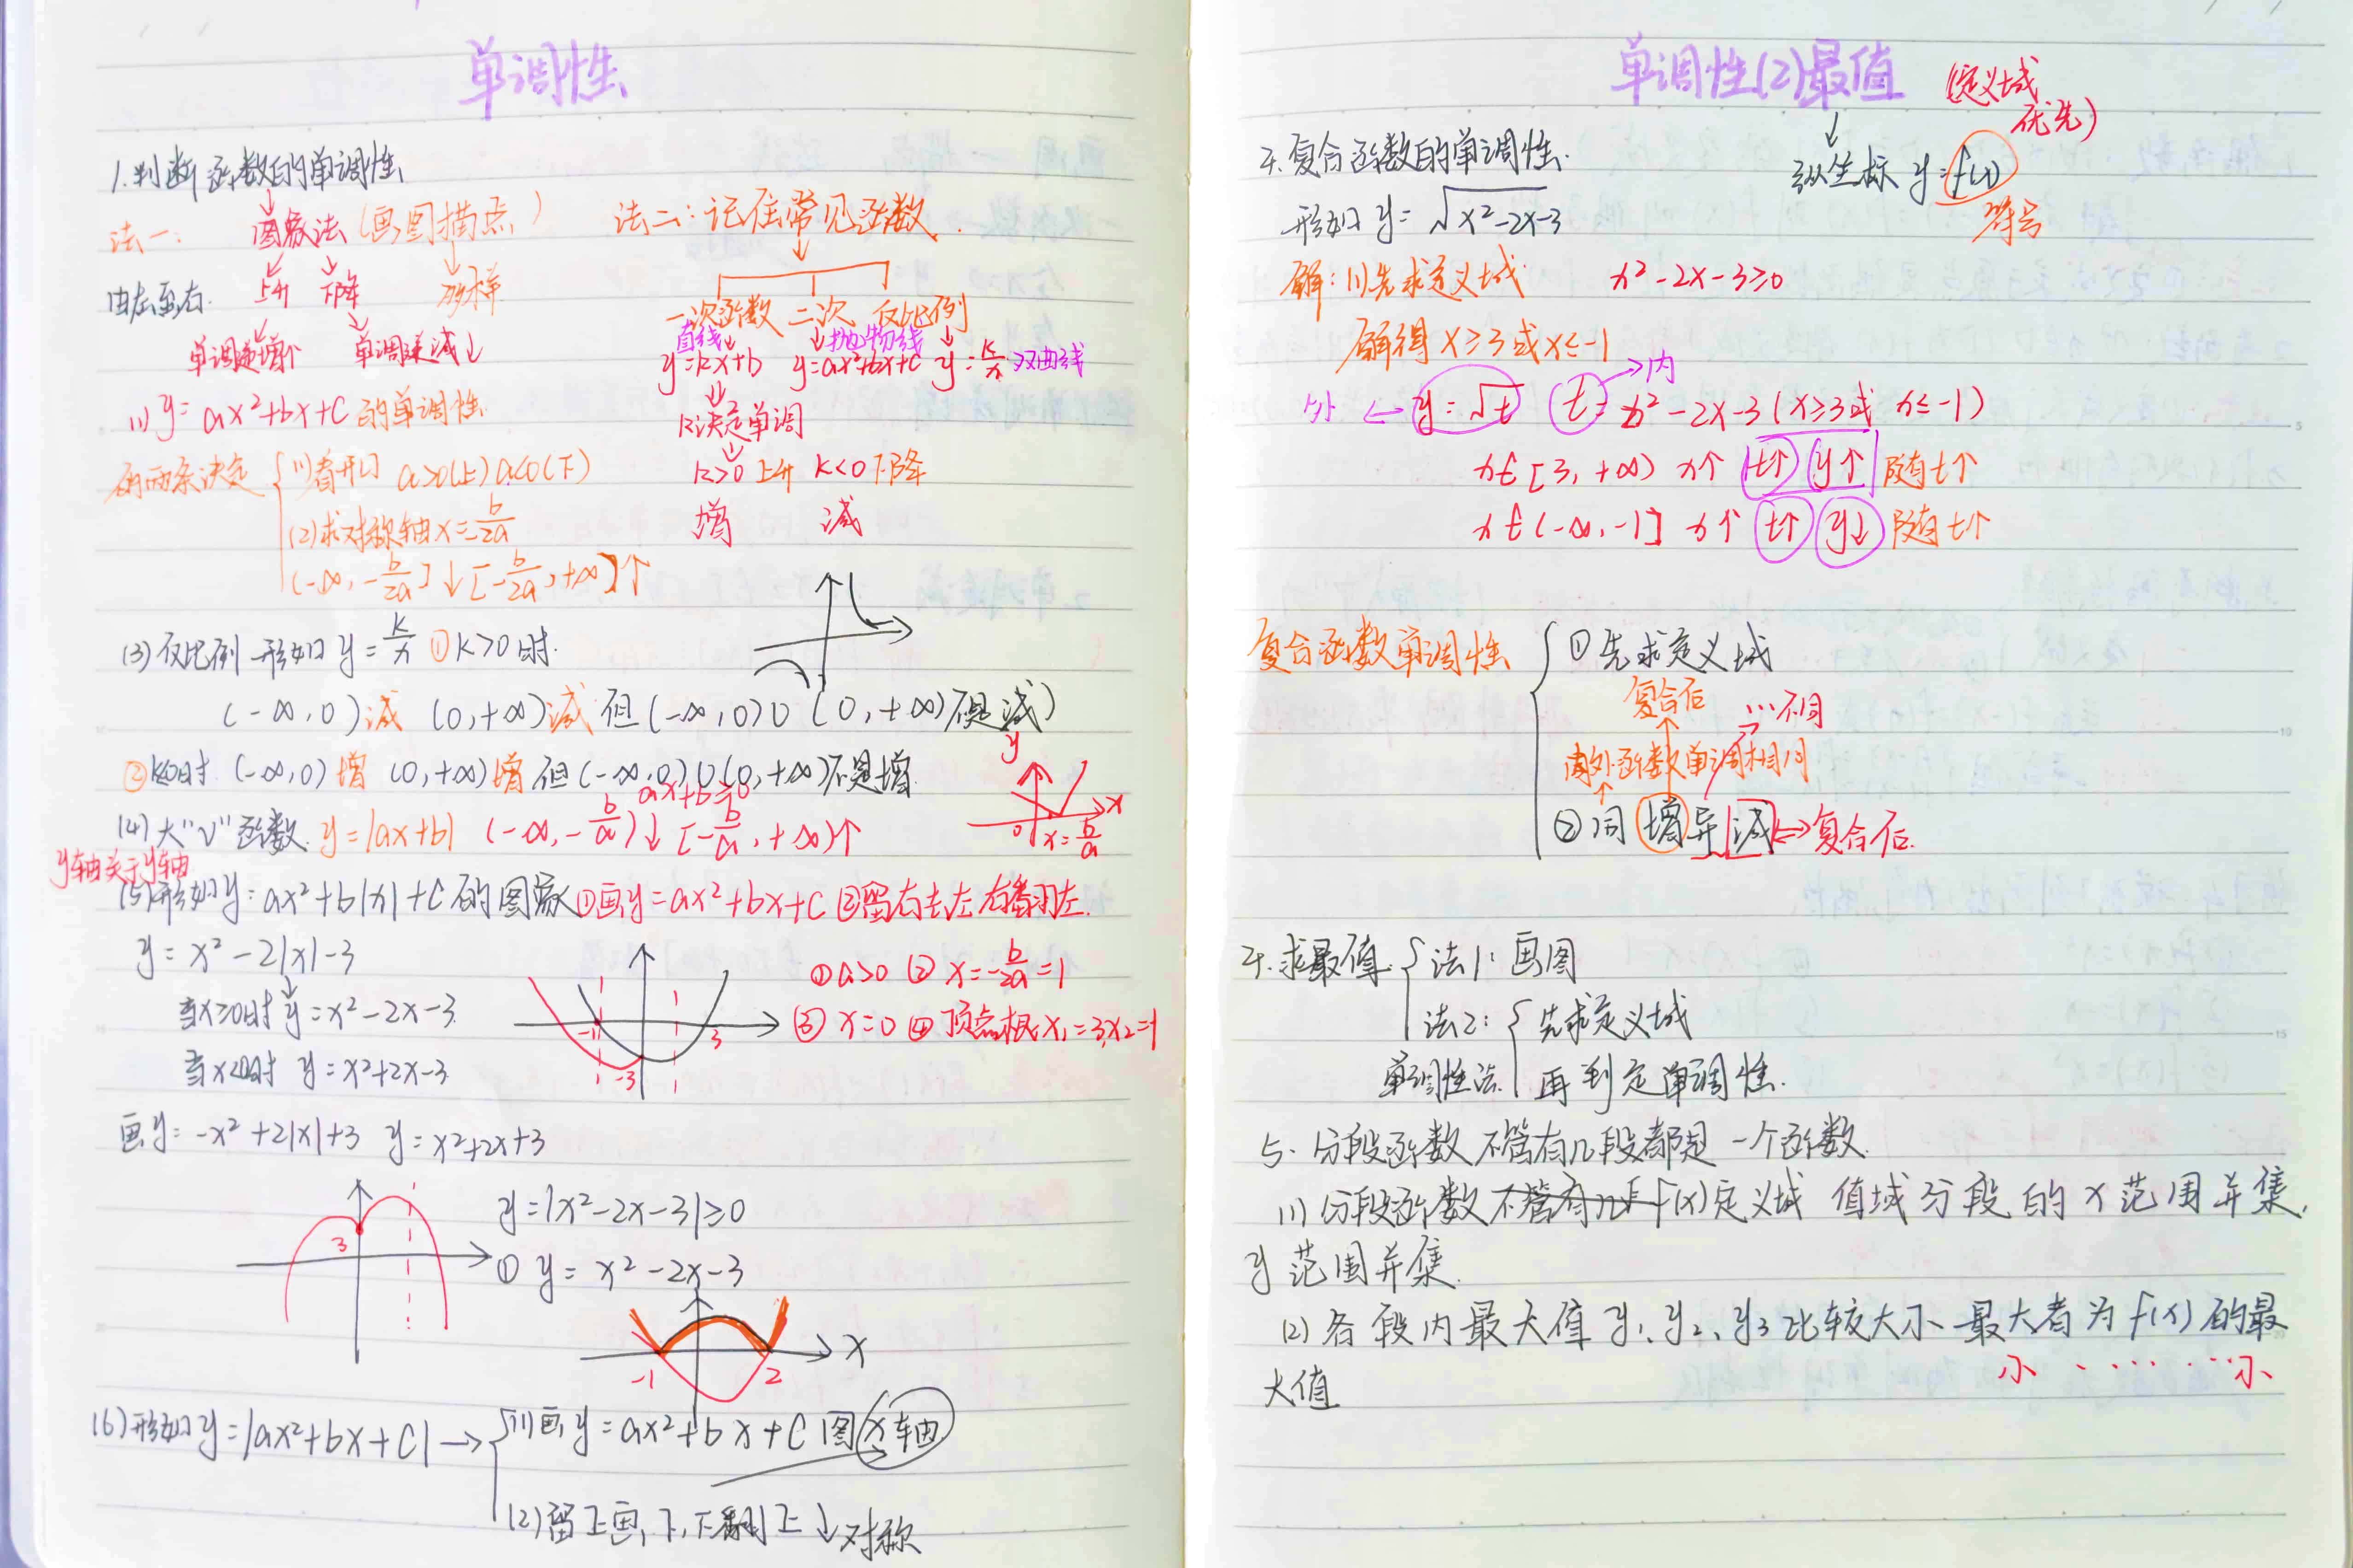 单调性
1.判断函数的单调性
法一: 图象法(画图描点) 法二:记住常见函数.
由左至右 上升 下降
单调递增↑ 单调递减↓
一次函数 二次 反比例
直线 抛物线
y=kx+b y=ax²+bx+c y=k/x 双曲线
(1) y=ax²+bx+c的单调性
k决定单调
k>0上升 k<0下降
增 减
由两条决定 (1)看开口 a>0(上) a<0(下)
(2)求对称轴x=-b/2a
(-∞,-b/2a]↓[-b/2a,+∞]↑
(3)反比例 形如y=k/x ①k>0时.
(-∞,0)减 (0,+∞)减 但(-∞,0)∪(0,+∞)不是减)
②k<0时.(-∞,0)增 (0,+∞)增 但(-∞,0)∪(0,+∞)不是增
ax+b=0
(4)大"V"函数 y=|ax+b| (-∞,-b/a)↓[-b/a,+∞)↑
y
x
0
x=-b/a
y轴关于y轴
(5)形如y=ax²+b|x|+c的图象①画y=ax²+bx+c②留右去左 右翻左.
y=x²-2|x|-3
当x≥0时 y=x²-2x-3
当x<0时 y=x²+2x-3
-1 3
-3
①a>0 ② x=-b/2a=1
③ x=0 ④顶点根x₁=3,x₂=-1
画y=-x²+2|x|+3 y=x²+2x+3
3
y=|x²-2x-3|≥0
① y=x²-2x-3
-1 2 x
(6)形如y=|ax²+bx+c|→ (1)画y=ax²+bx+c图x轴
(2)留上画下,下翻上↓对称
单调性(2)最值 (定义域
优先)
纵坐标 y=f(x)
符号
4.复合函数的单调性.
形如 y=√x²-2x-3
解:(1)先求定义域 x²-2x-3≥0
解得x≥3或x≤-1
内
外 ← y=√t t=x²-2x-3(x≥3或 x≤-1)
x∈[3,+∞) x↑ t↑ y↑ 随着t↑
x∈(-∞,-1] x↑ t↑ y↓ 随着t↑
复合函数单调性 ①先求定义域
复合后 …不同
内外函数单调相同
②同增异减⇔复合后.
4.求最值 法1:画图
法2: 先求定义域
单调性法 再判定单调性.
5.分段函数 不管有几段都是一个函数.
(1)分段函数 f(x)定义域 值域分段的x范围并集,
y范围并集.
(2)各段内最大值y₁、y₂、y₃比较大小 最大者为f(x)的最
小 ……… 小
大值